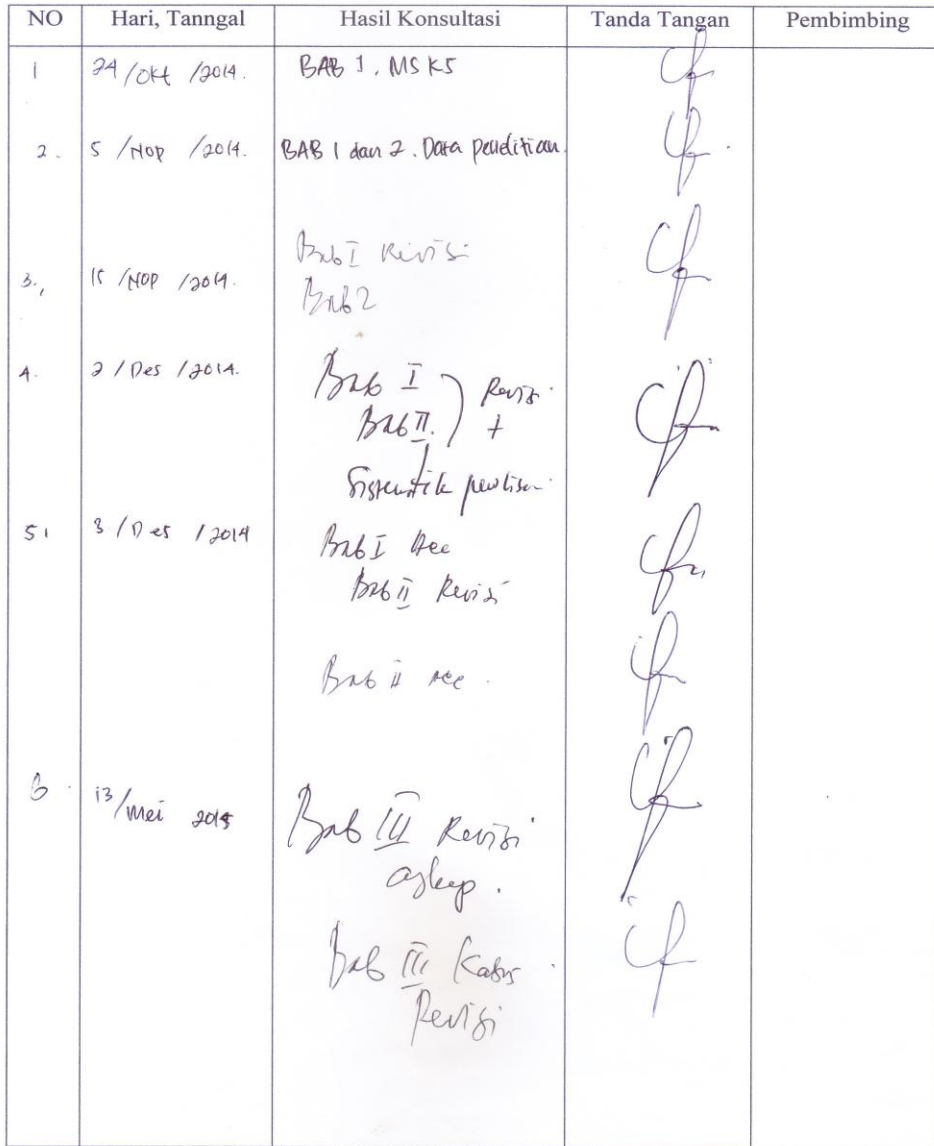 NO Hari, Tanngal Hasil Konsultasi Tanda Tangan Pembimbing
1 24/Okt /2014. BAB 1. MSKS
2. 5 /Nop /2014. BAB 1 dan 2. Data penelitian.
Bab I Revisi
3., 15 /NOP /2014.
Bab 2
4. 2 / Des / 2014. Bab I Revisi
Bab II. +
Sistematik penulisan.
5. 3 / Des / 2014 Bab I Acc
Bab II Revisi
Bab II Acc.
6. 13/Mei 2015
Bab III Revisi
askep.
Bab III Kasus
Revisi